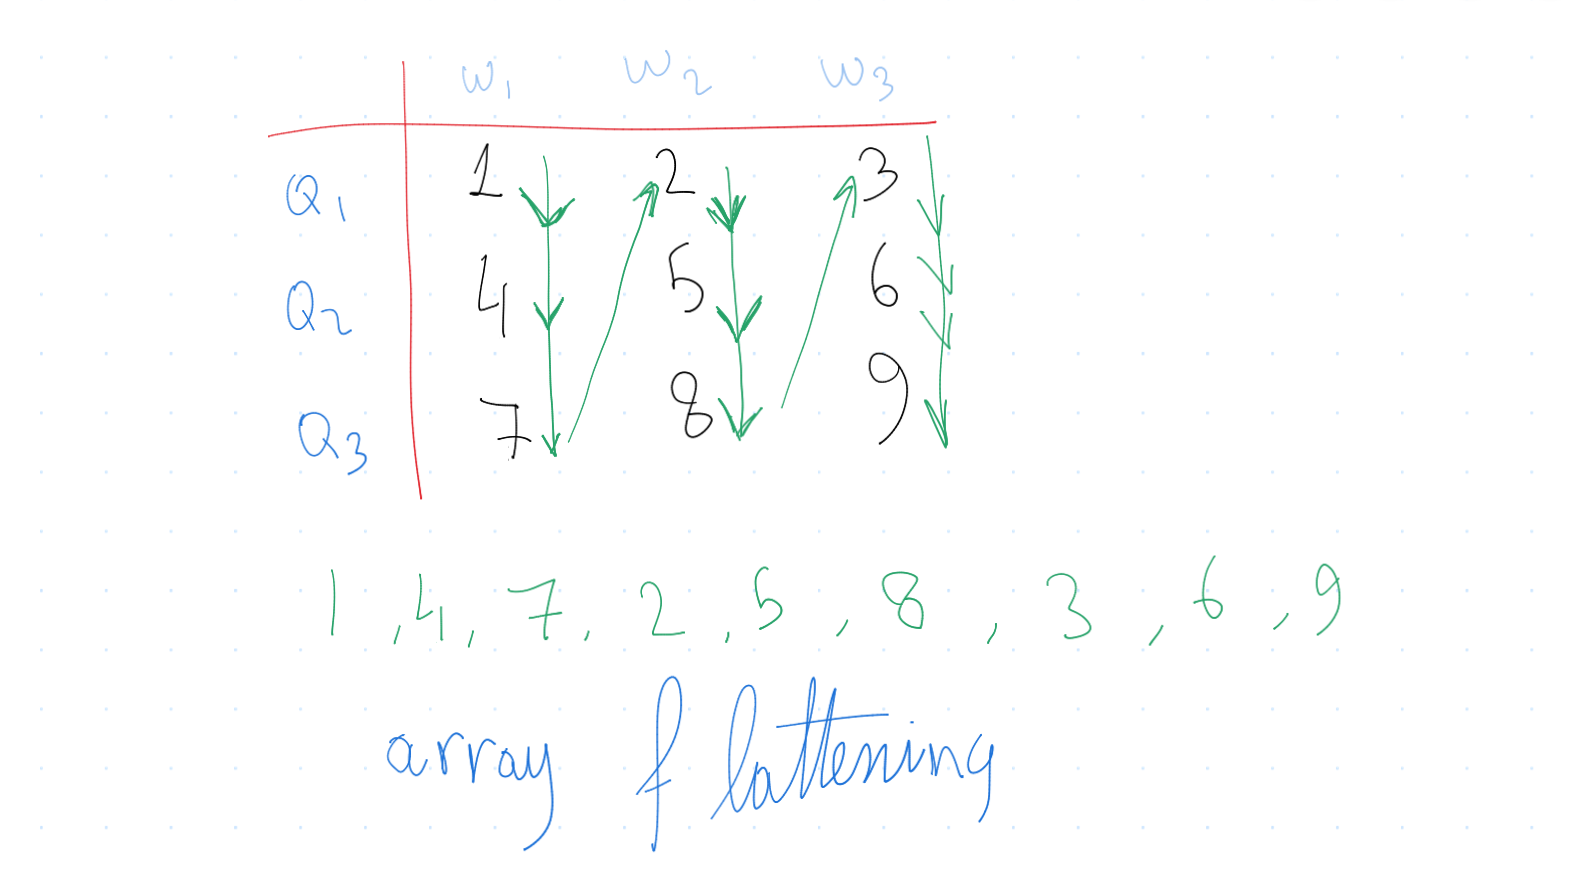 w1 w2 w3
Q1 1 2 3
Q2 4 5 6
Q3 7 8 9
1, 4, 7, 2, 5, 8, 3, 6, 9
array flattening